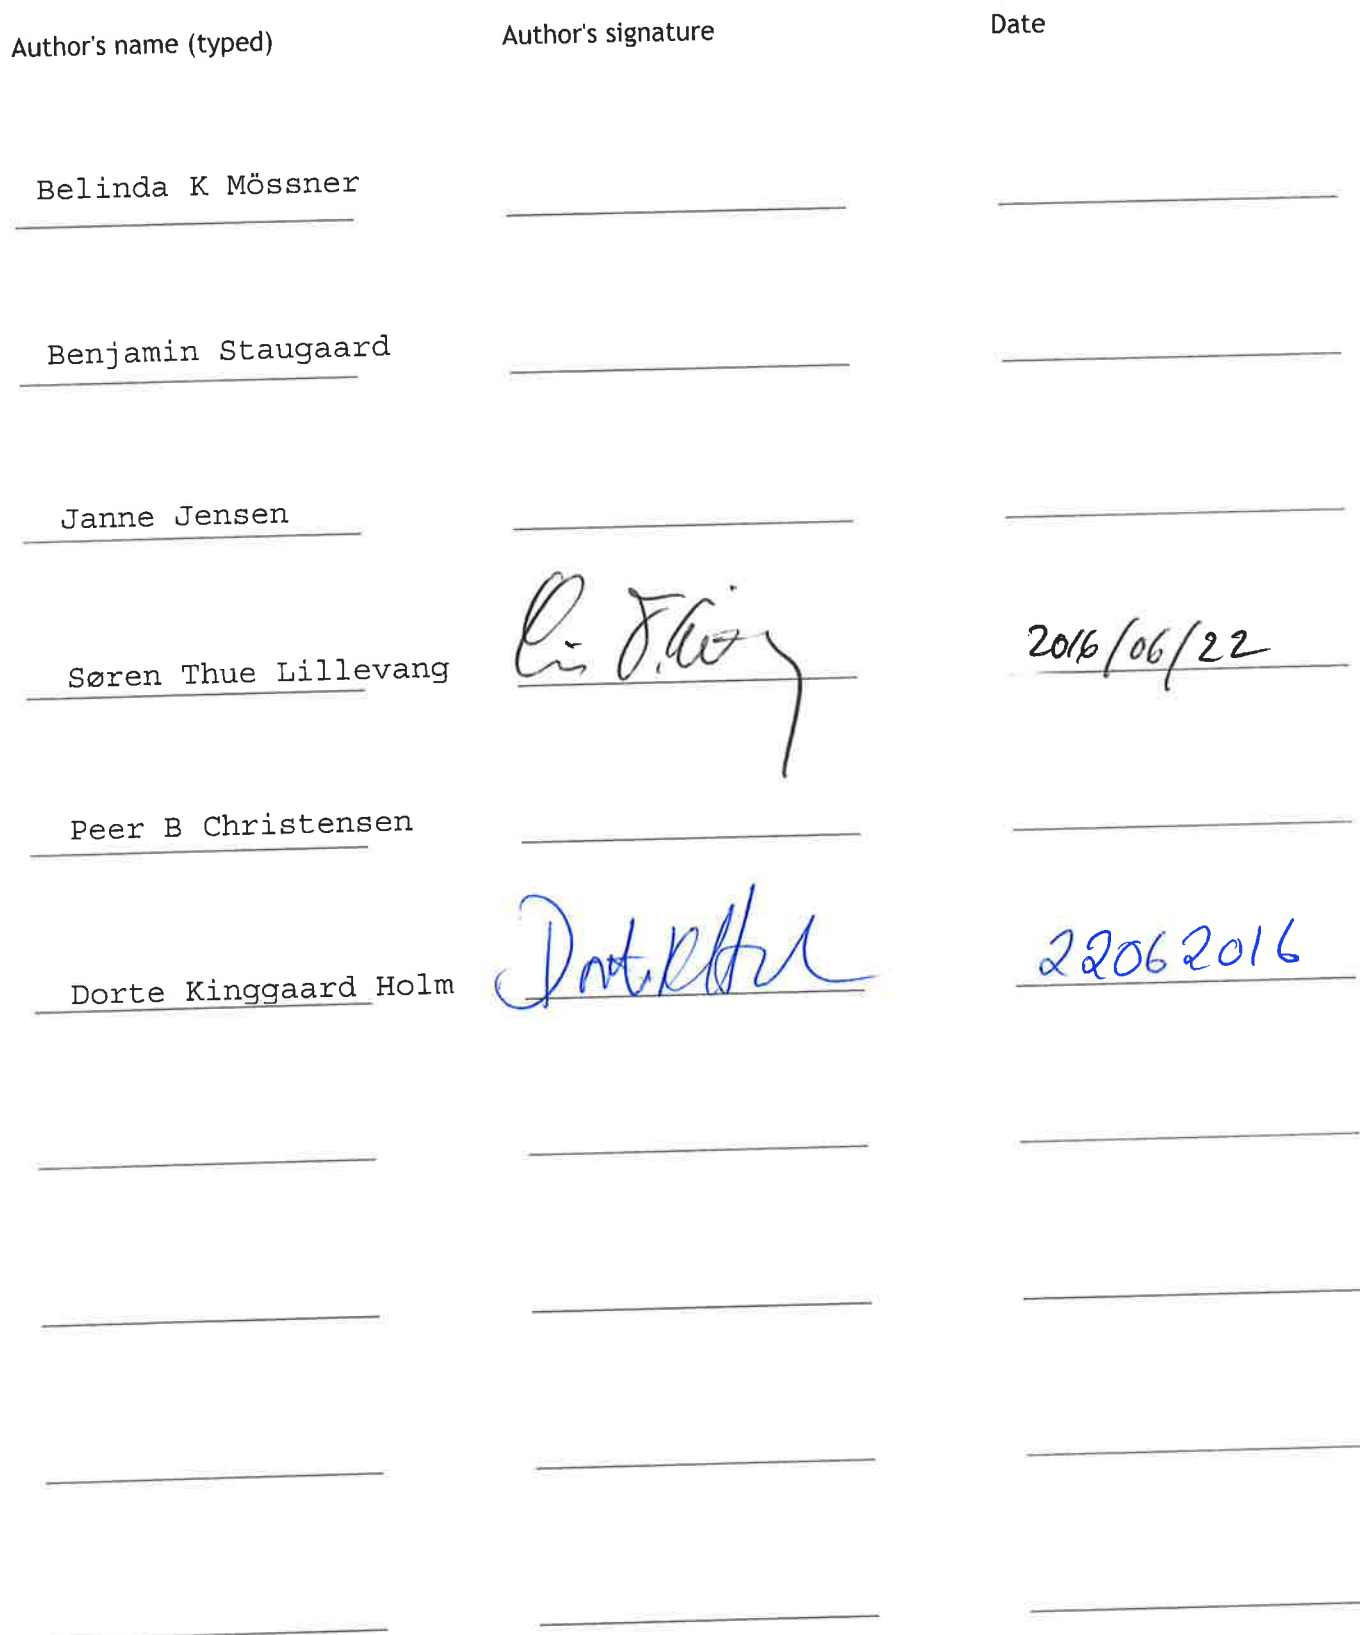 Author's name (typed) Author's signature Date
Belinda K Mössner
Benjamin Staugaard
Janne Jensen
Søren Thue Lillevang 2016/06/22
Peer B Christensen
Dorte Kinggaard Holm 22062016